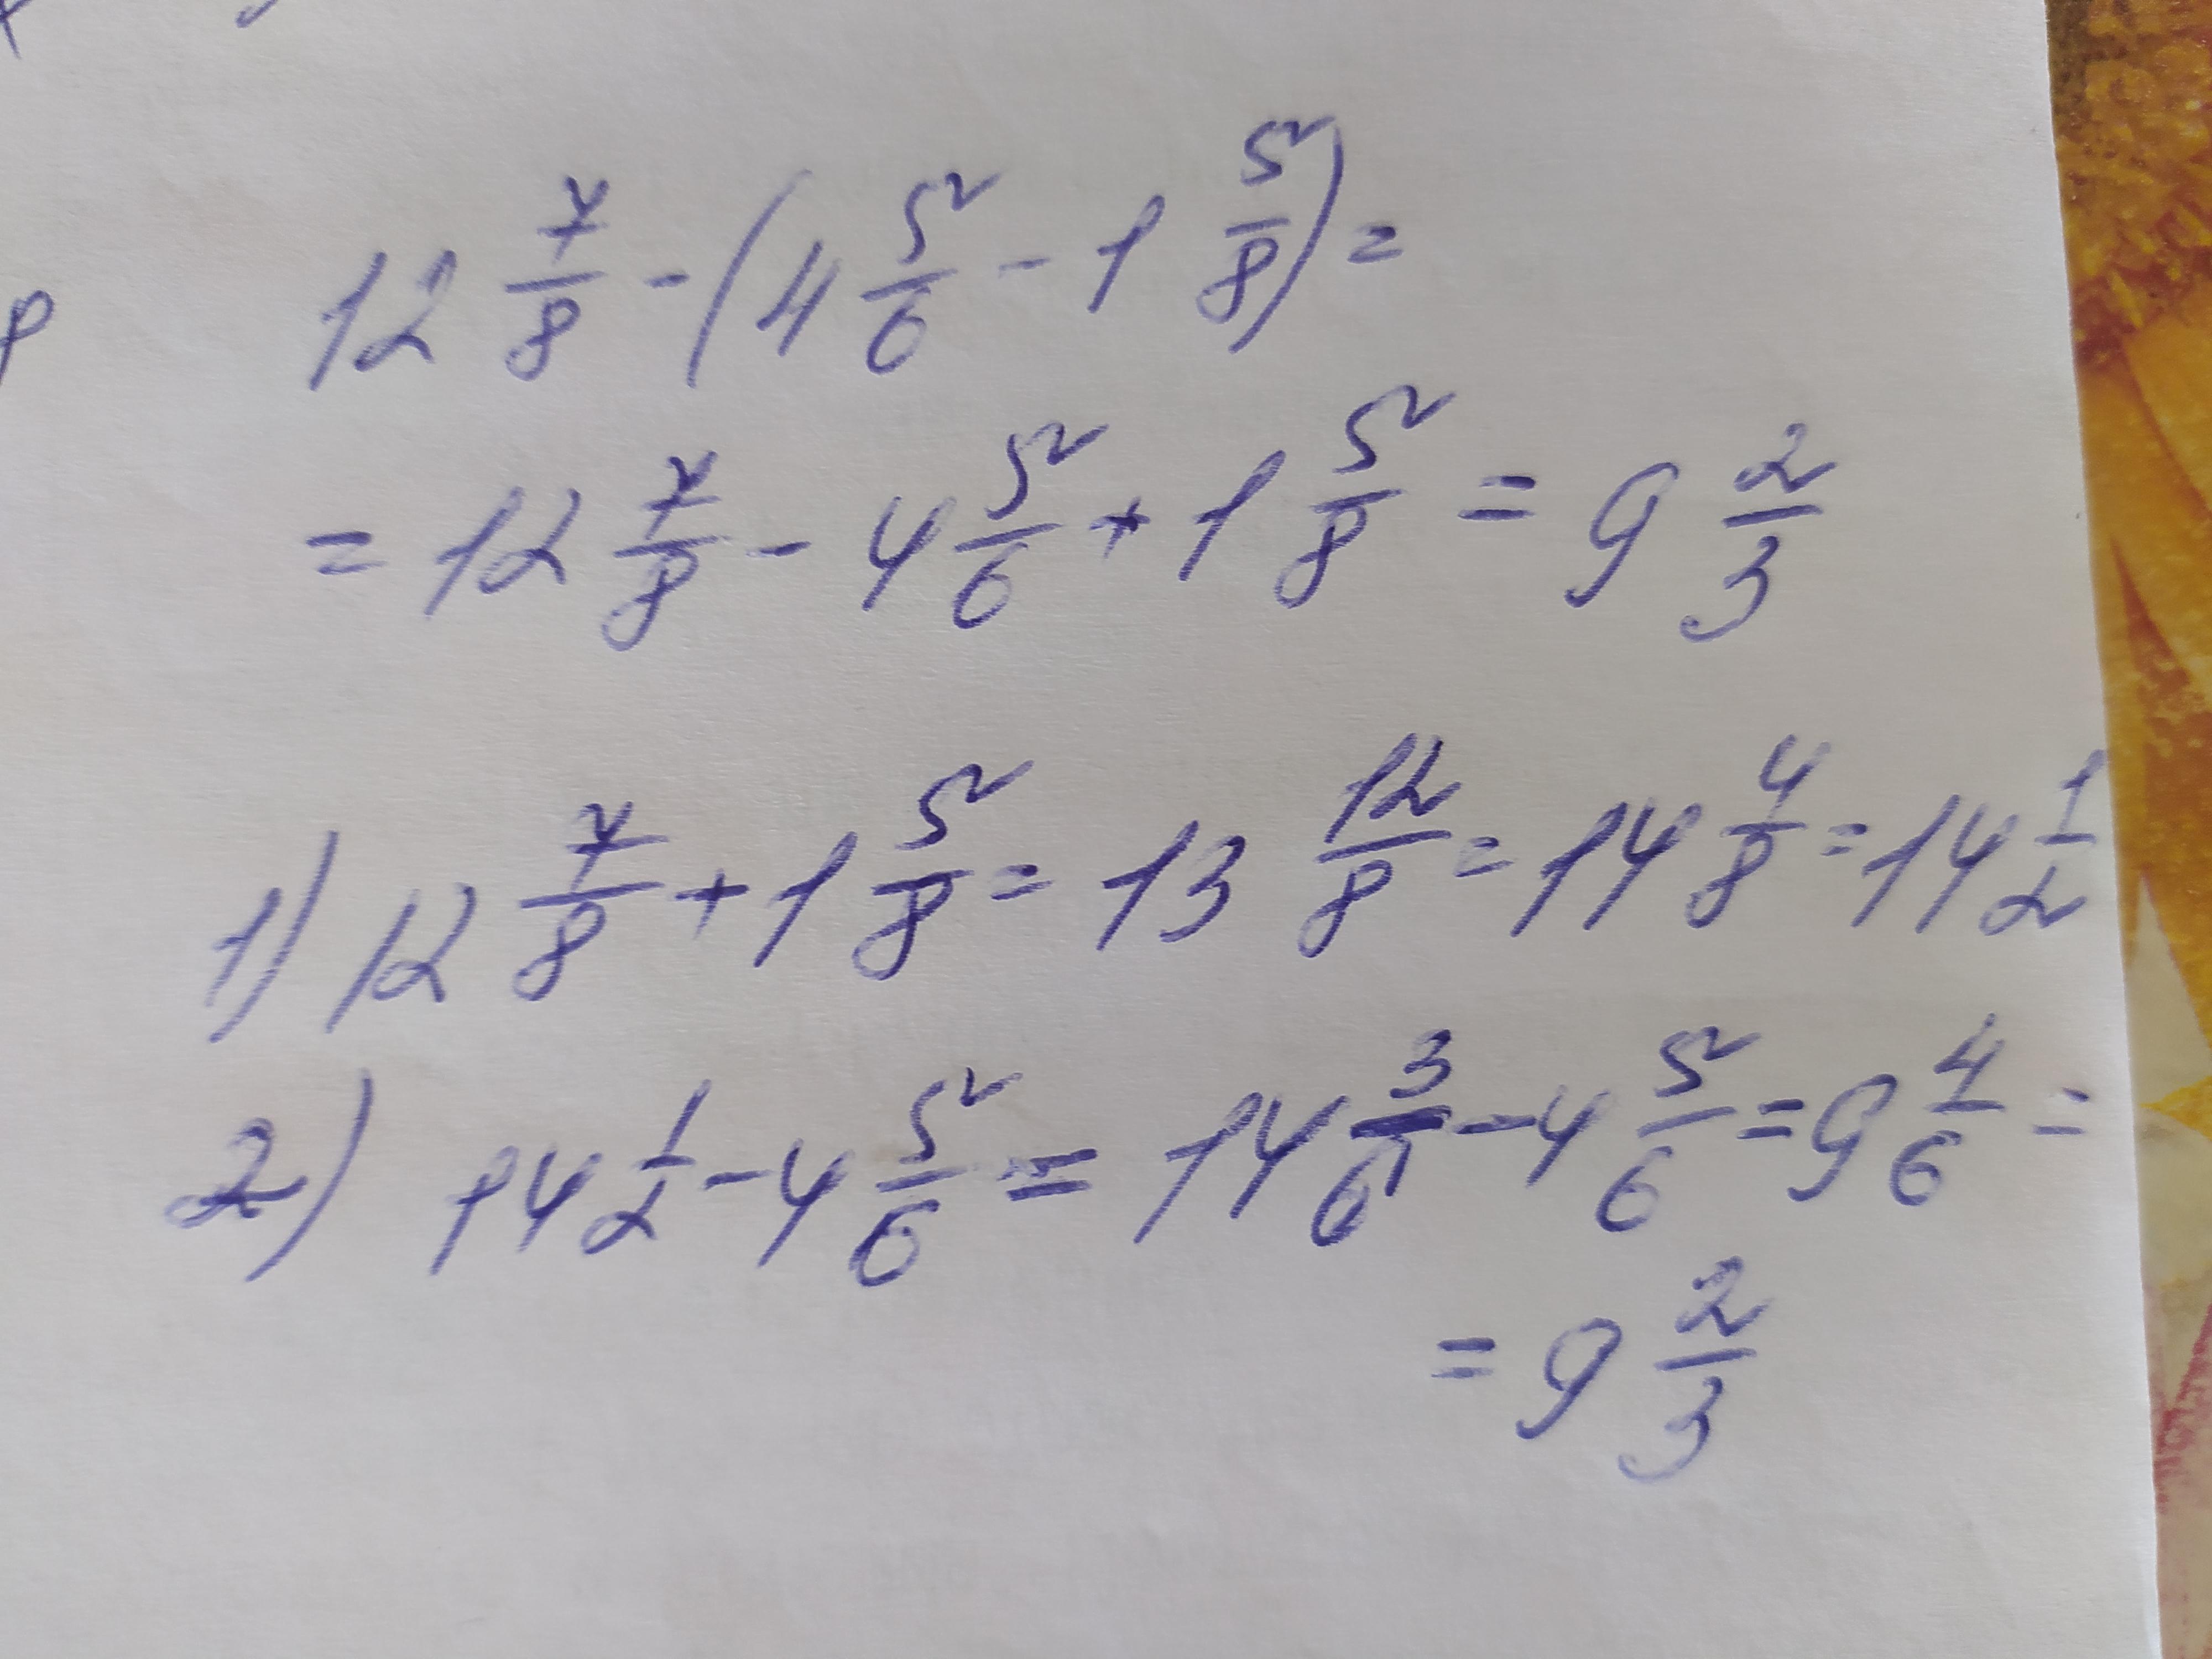 12 7/8 - (4 5/6 - 1 5/8) =
= 12 7/8 - 4 5/6 + 1 5/8 = 9 2/3
1) 12 7/8 + 1 5/8 = 13 12/8 = 14 4/8 = 14 1/2
2) 14 1/2 - 4 5/6 = 14 3/6 - 4 5/6 = 9 4/6 =
= 9 2/3